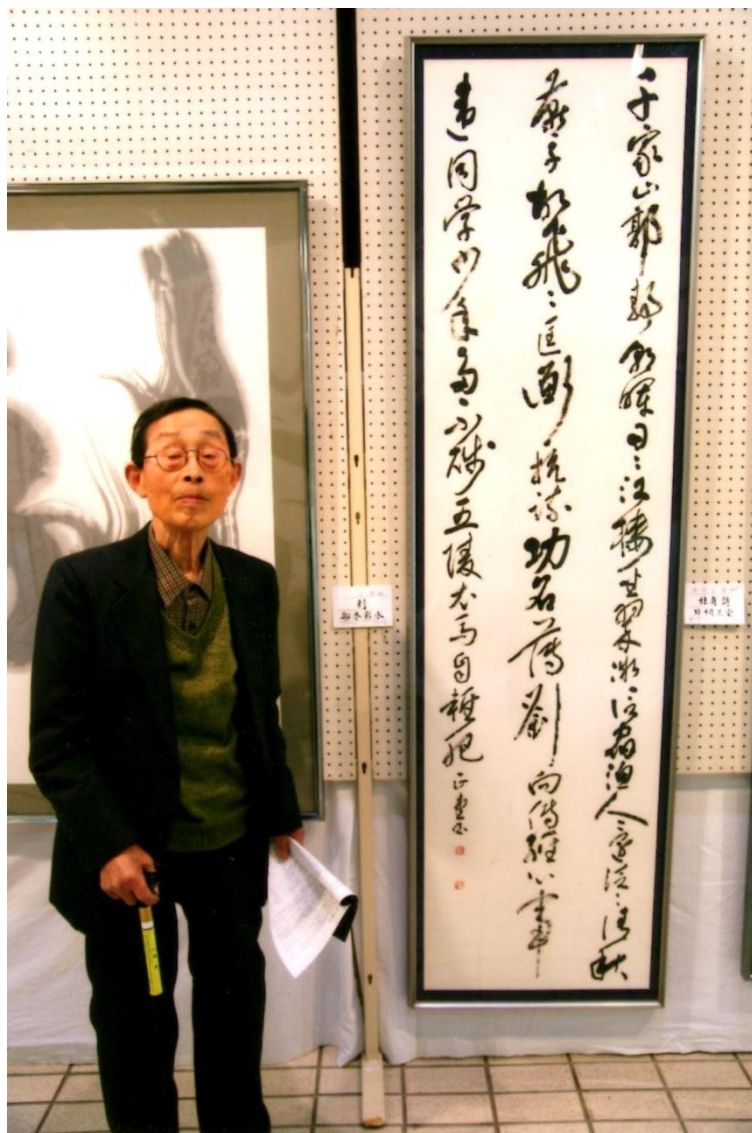 千家山郭静朝暉日〻江楼坐翠微信宿漁人還泛〻清秋
燕子故飛〻匡衡抗疏功名薄劉向傳經心事
違同学少年多不賤五陵衣馬自軽肥
杜甫詩